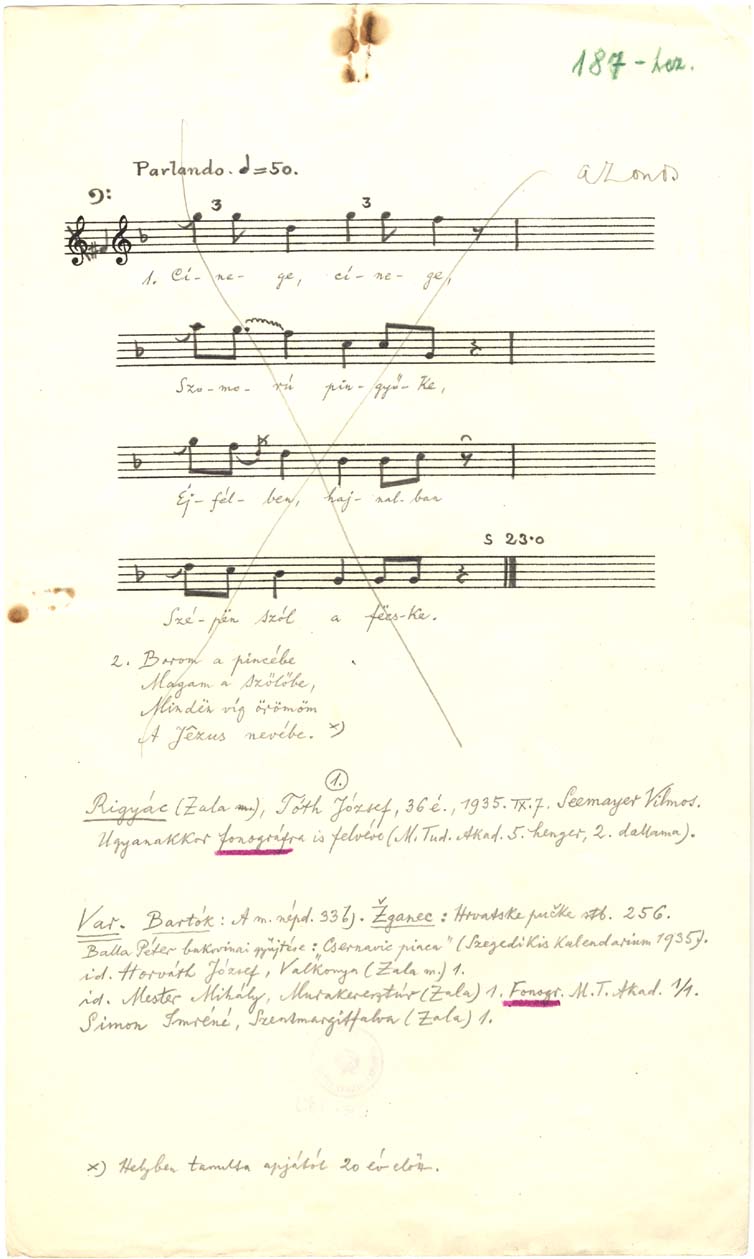 187-hez.
Parlando. ♩=50.
azonos
3 3
1. Ci- ne- ge, ci- ne- ge,
Szo- mo- rú pin- győ- ke,
Éj- fél- ben, haj- nal- ban
S 23·0
Szé- pën szól a fëcs- ke.
2. Borom a pincébe
Magam a szőlőbe,
Mindën víg örömöm
A Jézus nevébe. x)
1.
Rigyác (Zala m.), Tóth József, 36 é., 1935. IX. 7. Seemayer Vilmos.
Ugyanakkor fonográfra is felvéve (M. Tud. Akad. 5. henger, 2. dallama).
Var. Bartók: A m. népd. 33b). Žganec: Hrvatske pučke stb. 256.
Balla Péter bukovinai gyűjtése: Csernavic piaca" (Szegedi Kis Kalendarium 1935).
id. Horváth József, Valkonya (Zala m.) 1.
id. Mester Mihály, Murakeresztúr (Zala) 1. Fonogr. M. T. Akad. 1/1.
Simon Imréné, Szentmargitfalva (Zala) 1.
x) Helyben tanulta apjától 20 év előtt.